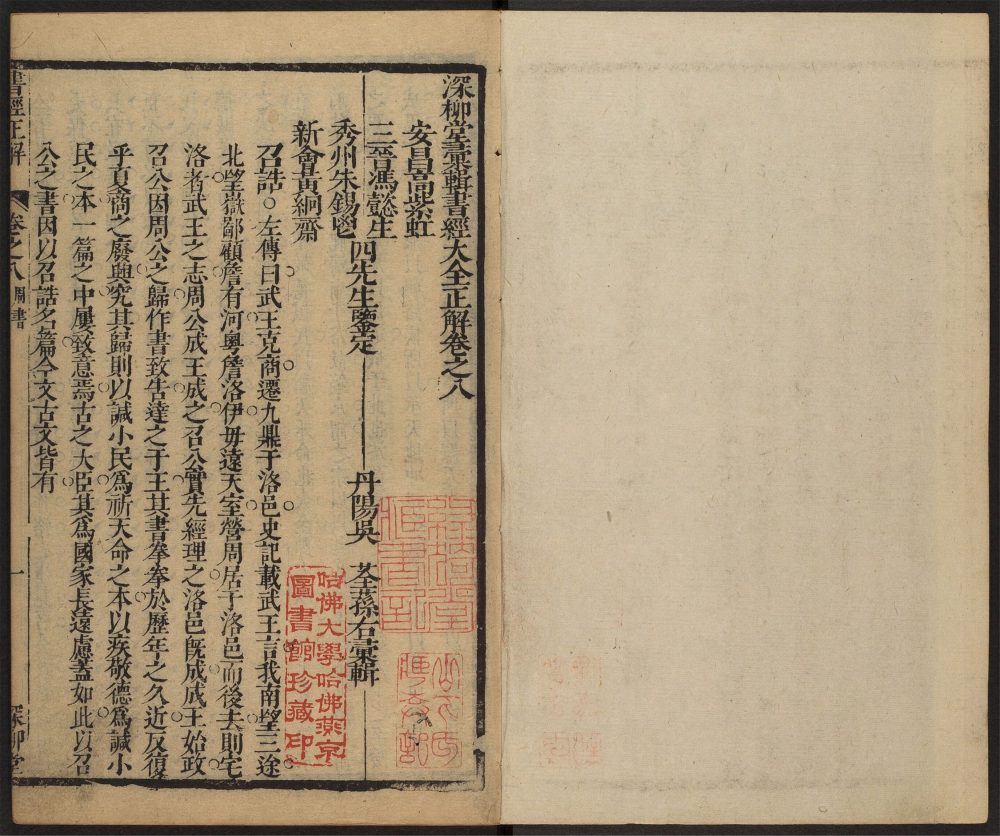 深柳堂彙輯書經大全正解卷之八
安昌高紫虹
三晉馮懿生
秀州朱錫鬯
新會黃綗齋
四先生鑒定
丹陽吳 荃蓀右彙輯
召誥○左傳曰武王克商遷九鼎于洛邑史記載武王言我南望三途
北望嶽鄙顧詹有河粵詹洛伊毋遠天室營周居于洛邑而後去則宅
洛者武王之志周公成王成之召公實先經理之洛邑旣成成王始政
召公因周公之歸作書致告達之于王其書拳拳於歷年之久近反復
乎夏商之廢興究其歸則以諴小民爲祈天命之本以疾敬德爲諴小
民之本一篇之中屢致意焉古之大臣其爲國家長遠慮蓋如此以召
公之書因以召誥名篇今文古文皆有
書經正解 卷之八 周書 一 深柳堂
哈佛大學哈佛燕京
圖書館珍藏印